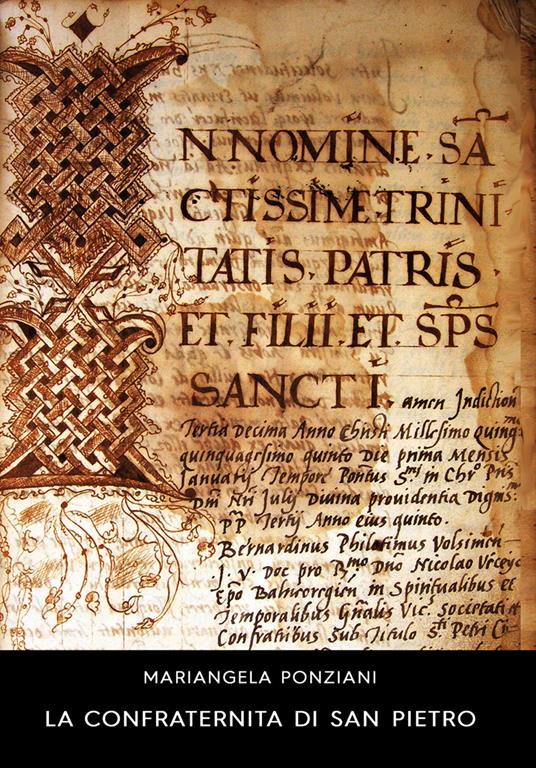 IN NOMINE. SA
CTISSIME. TRINI
TATIS. PATRIS.
ET. FILII. ET. SPS
SANCTI. amen Indiction
Tertia Decima Anno Christi Millesimo quing
quinquagesimo quinto Die prima Mensis
Januarij Tempore Pontus S.mi in Chro Pris
Dm Nri Julij Divina providentia Digms:
PP Tertij Anno eius quinto.
Bernardinus Philatimus Volsimen
J. V. Doc pro Rmo Dno Nicolao
Epo in Spiritualibus et
Temporalibus Gnalis Vic. Societati et
Confratribus Sub Titulo Sti Petri
MARIANGELA PONZIANI
LA CONFRATERNITA DI SAN PIETRO